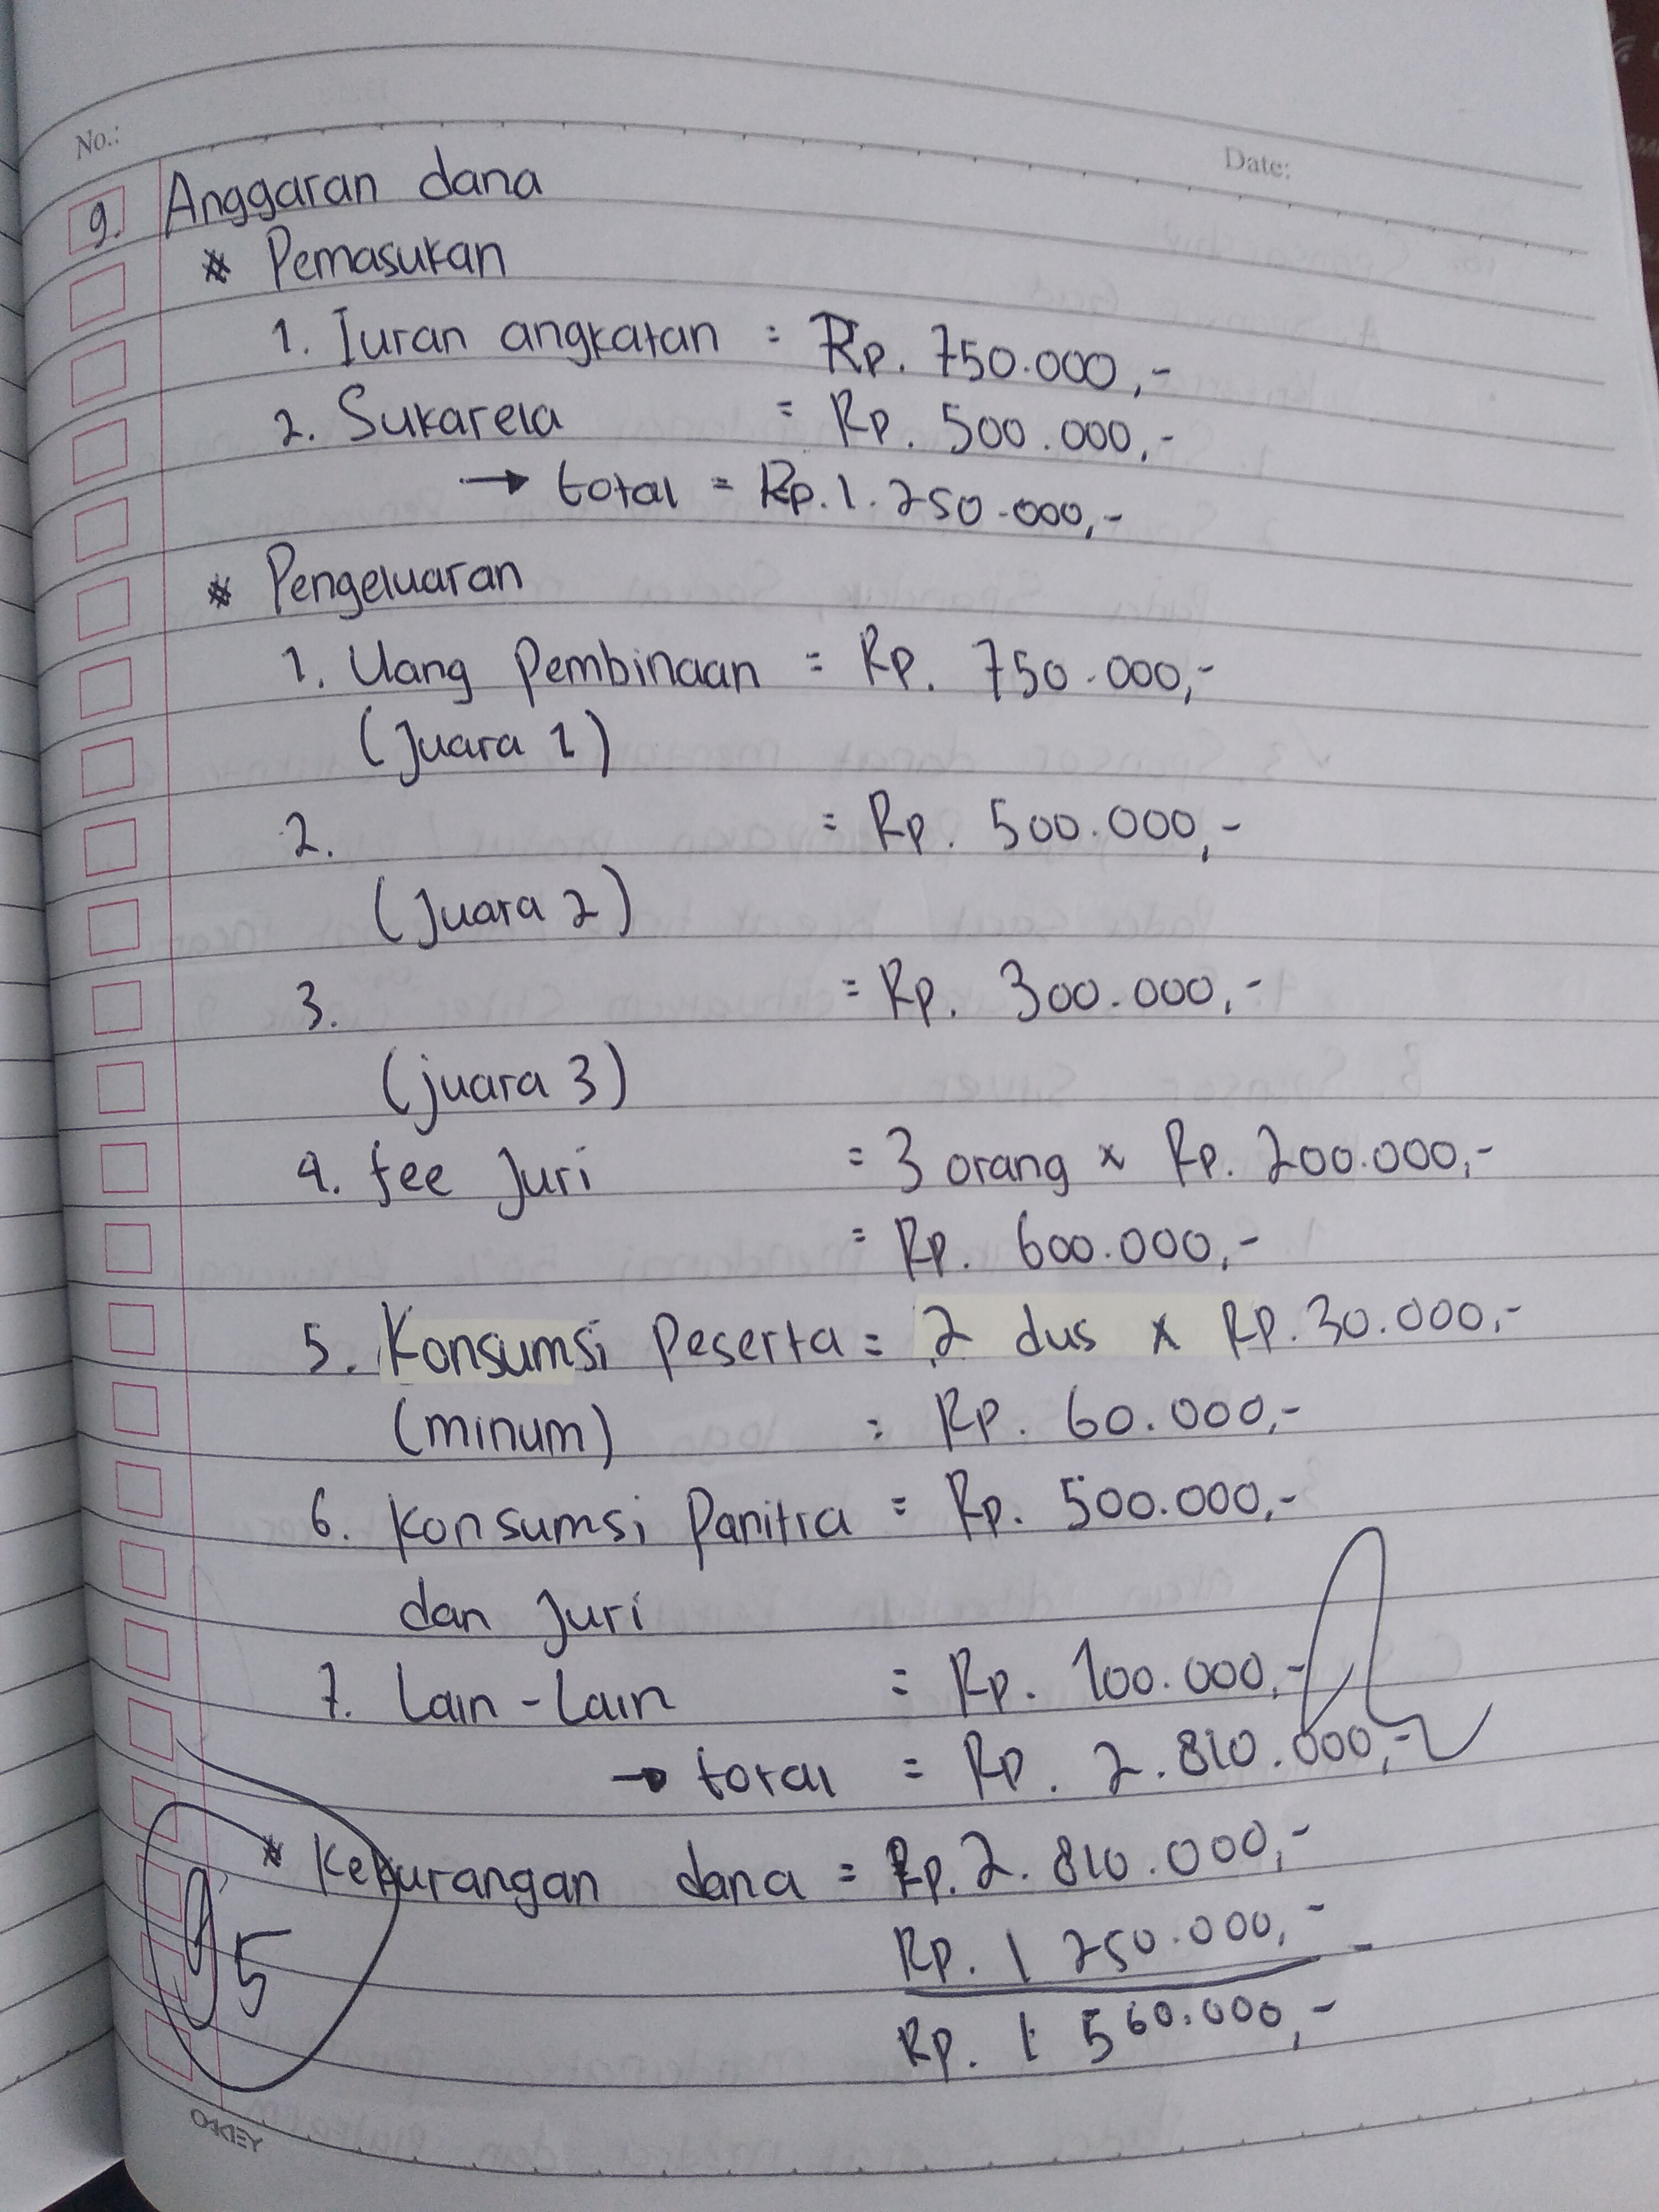 No.:
Date:
9. Anggaran dana
* Pemasukan
1. Iuran angkatan = Rp. 750.000,-
2. Sukarela = Rp. 500.000,-
→ total = Rp. 1.250.000,-
* Pengeluaran
1. Uang Pembinaan = Rp. 750.000,-
(Juara 1)
2. = Rp. 500.000,-
(Juara 2)
3. = Rp. 300.000,-
(juara 3)
4. fee Juri = 3 orang x Rp. 200.000,-
= Rp. 600.000,-
5. Konsumsi Peserta = 2 dus x Rp. 30.000,-
(minum) = Rp. 60.000,-
6. Konsumsi Panitia = Rp. 500.000,-
dan Juri
7. Lain-Lain = Rp. 100.000,-
→ total = Rp. 2.810.000,-
* Kekurangan dana = Rp. 2.810.000,-
Rp. 1 250.000,- -
Rp. 1. 560.000,-
95
OKEY